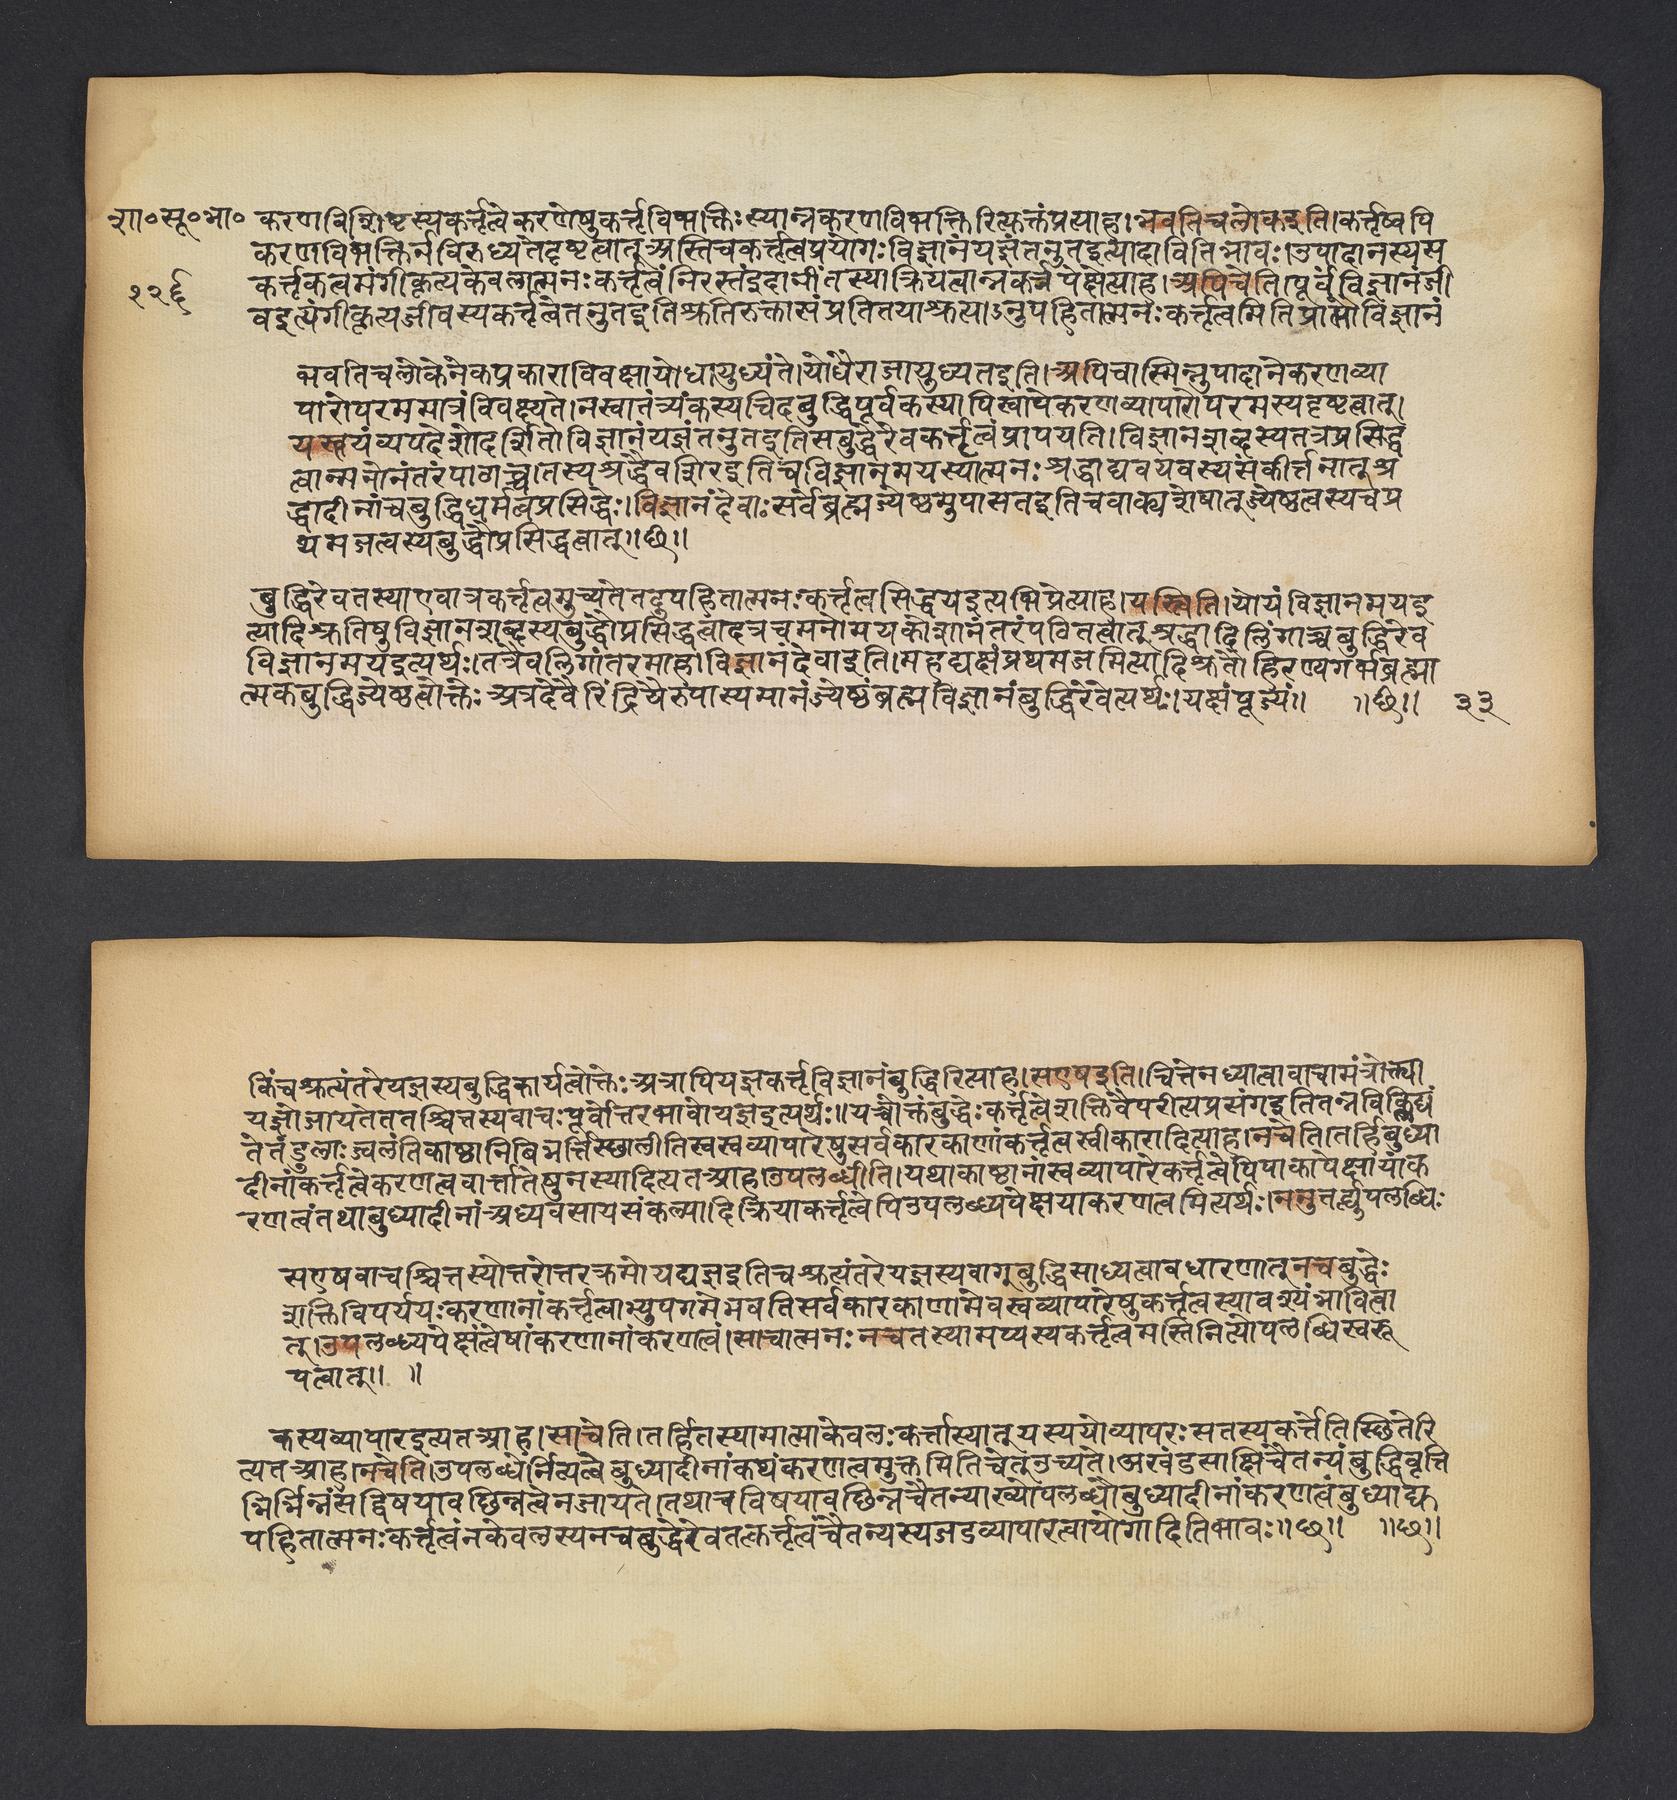 शा॰सू॰भा॰ करणविशिष्टस्यकर्त्तृत्वेकरणेषुकर्त्तृविभक्तिःस्यान्नकरणविभक्तिरित्युक्तंप्रत्याह।भवतिचलोकइति।कर्त्तृष्वपि
करणविभक्तिर्नविरुध्यतेदृष्टत्वात्अस्तिचकर्त्तृत्वप्रयोगःविज्ञानंयज्ञंतनुतइत्यादावितिभावः।उपादानस्यस
१२६ कर्त्तृकत्वमंगीकृत्यकेवलात्मनःकर्त्तृत्वंनिरस्तंइदानींतस्याक्रियत्वान्नकर्त्रपेक्षेत्याह।अपिचेति।पूर्वंविज्ञानंजी
वइत्यंगीकृत्यजीवस्यकर्त्तृत्वेतनुतइतिश्रुतिरुक्तासंप्रतितयाश्रुत्याऽनुपहितात्मनःकर्त्तृत्वमितिप्राप्तौविज्ञानं
भवतिचलोकेनेकप्रकाराविवक्षायोधायुध्यंते।योधैराजायुध्यतइति।अपिचास्मिन्नुपादानेकरणव्या
पारोपरममात्रंविवक्ष्यते।नस्वातंत्र्यंकस्यचिदबुद्धिपूर्वकस्यापिस्वापेकरणव्यापारोपरमस्यदृष्टत्वात्।
यस्त्वयंव्यपदेशोदर्शितोविज्ञानंयज्ञंतनुतइतिसबुद्धेरेवकर्त्तृत्वंप्रापयति।विज्ञानशब्दस्यतत्रप्रसिद्ध
त्वान्मनोनंतरंपाठाच्च।तस्यश्रद्धैवशिरइतिचविज्ञानमयस्यात्मनःश्रद्धाद्यवयवस्यसंकीर्त्तनात्श्र
द्धादीनांचबुद्धिधर्मत्वप्रसिद्धेः।विज्ञानंदेवाःसर्वेब्रह्मज्येष्ठमुपासतइतिचवाक्यशेषात्ज्येष्ठत्वस्यचप्र
थमजत्वस्यबुद्धौप्रसिद्धत्वात्॥छ॥
बुद्धिरेवतस्याएवात्रकर्त्तृत्वमुच्यतेतदुपहितात्मनःकर्त्तृत्वसिद्धयइत्यभिप्रेत्याह।यस्त्विति।योयंविज्ञानमयइ
त्यादिश्रुतिषुविज्ञानशब्दस्यबुद्धौप्रसिद्धत्वादत्रचमनोमयकोशानंतरंपठितत्वात्श्रद्धादिलिंगाच्चबुद्धिरेव
विज्ञानमयइत्यर्थः।तत्रैवलिंगांतरमाह।विज्ञानंदेवाइति।महद्यक्षंप्रथमजमित्यादिश्रुतौहिरण्यगर्भब्रह्मा
त्मकबुद्धिज्येष्ठत्वोक्तेःअत्रदेवैरिंद्रियैरुपास्यमानंज्येष्ठंब्रह्मविज्ञानंबुद्धिरेवेत्यर्थः।यक्षंपूज्यं॥ ॥छ॥ ३३
किंचश्रुत्यंतरेयज्ञस्यबुद्धिकार्यत्वोक्तेःअत्रापियज्ञकर्त्तृविज्ञानंबुद्धिरित्याह।सएषइति।चित्तेनध्यात्वावाचामंत्रोक्त्या
यज्ञोजायतेततश्चित्तस्यवाचःपूर्वोत्तरभावोयज्ञइत्यर्थः॥यच्चोक्तंबुद्धेःकर्त्तृत्वेशक्तिवैपरीत्यप्रसंगइतितन्नविक्लिद्यं
तेतंडुलाःज्वलंतिकाष्ठानिबिभर्त्तिस्थालीतिस्वस्वव्यापारेषुसर्वकारकाणांकर्त्तृत्वस्वीकारादित्याह।नचेति।तर्हिबुध्या
दीनांकर्त्तृत्वेकरणत्ववार्त्तातेषुनस्यादित्यतआह।उपलब्धीति।यथाकाष्ठानांस्वव्यापारेकर्त्तृत्वेपिपाकापेक्षायांक
रणत्वंतथाबुध्यादीनांअध्यवसायसंकल्पादिक्रियाकर्त्तृत्वेपिउपलब्ध्यपेक्षयाकरणत्वमित्यर्थः।ननुतर्ह्युपलब्धिः
सएषवाचश्चित्तस्योत्तरोत्तरक्रमोयद्यज्ञइतिचश्रुत्यंतरेयज्ञस्यवाग्बुद्धिसाध्यत्वावधारणात्नचबुद्धेः
शक्तिविपर्ययःकरणानांकर्त्तृत्वाभ्युपगमेभवतिसर्वकारकाणामेवस्वव्यापारेषुकर्त्तृत्वस्यावश्यंभावित्वा
त्।उपलब्ध्यपेक्षंत्वेषांकरणानांकरणत्वं।साचात्मनःनचतस्यामप्यस्यकर्त्तृत्वमस्तिनित्योपलब्धिस्वरू
पत्वात्॥ ॥
कस्यव्यापारइत्यतआह।साचेति।तर्हितस्यामात्माकेवलःकर्त्तास्यात्यस्ययोव्यापारःसतस्यकर्त्तेतिस्थितेरि
त्यतआह।नचेति।उपलब्धेर्नित्यत्वेबुध्यादीनांकथंकरणत्वमुक्तमितिचेत्उच्यते।अखंडसाक्षिचैतन्यंबुद्धिवृत्ति
भिर्भिन्नंसद्विषयावछिन्नत्वेनजायते।तथाचविषयावछिन्नचैतन्याख्योपलब्धौबुध्यादीनांकरणत्वंबुध्याद्यु
पहितात्मनःकर्त्तृत्वंनकेवलस्यनचबुद्धेरेवतत्कर्त्तृत्वंचैतन्यस्यजडव्यापारत्वायोगादितिभावः॥छ॥ ॥छ॥